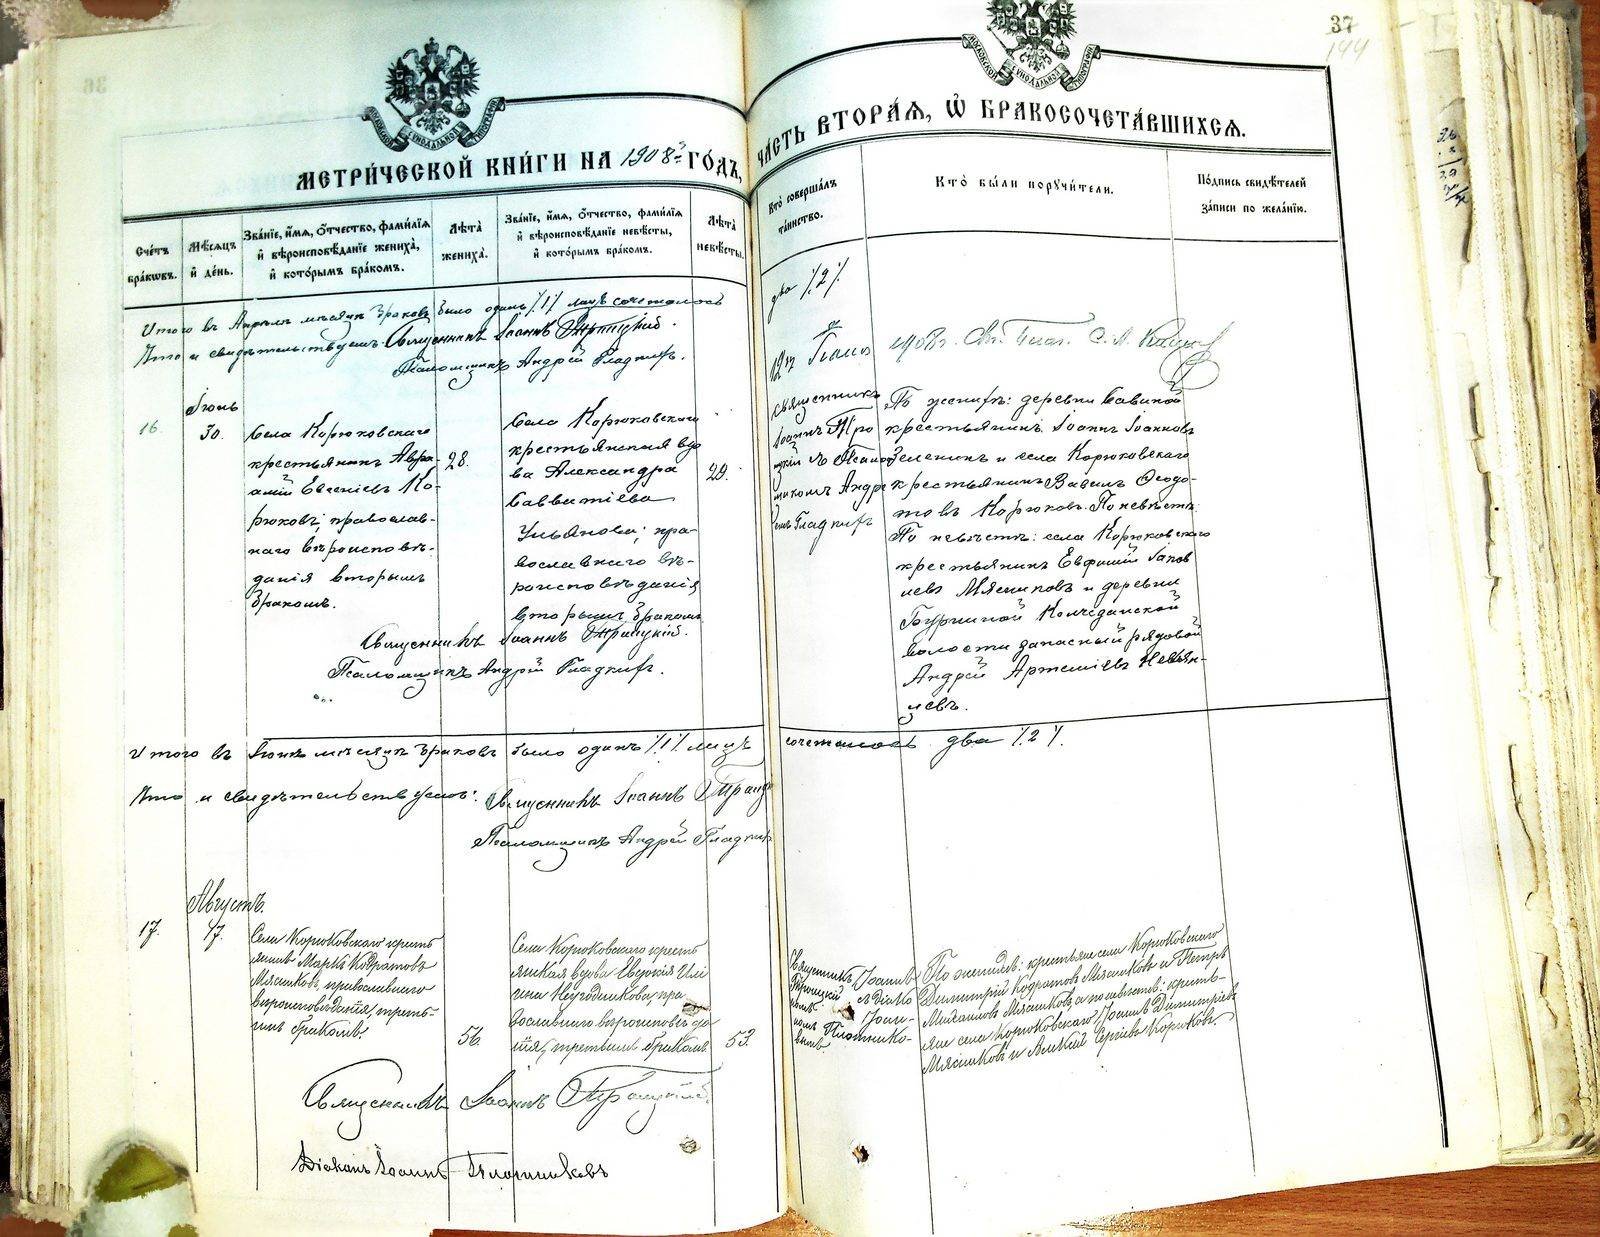 37
144
МОСКОВСКОЙ СѴНОДАЛЬНОЙ ТИПОГРАФІИ
МОСКОВСКОЙ СѴНОДАЛЬНОЙ ТИПОГРАФІИ
МЕТРИ́ЧЕСКОЙ КНИ́ГИ НА 1908й ГО́ДЪ,
ЧА́СТЬ ВТОРА́Я, Ѽ БРАКОСОЧЕТА́ВШИХСЯ.
Сче́тъ бра́кѡвъ.
Мѣ́сяцъ и҆ де́нь.
Зва́нїе, и҆́мя, ѻ҆́тчество, фами́лїя и҆ вѣроисповѣ́данїе жениха̀, и҆ кото́рымъ бра́комъ.
Лѣ̑та жениха̀.
Зва́нїе, и҆́мя, ѻ҆́тчество, фами́лїя и҆ вѣроисповѣ́данїе невѣ́сты, и҆ кото́рымъ бра́комъ.
Лѣ̑та невѣ́сты.
Кто̀ соверша́лъ та́инство.
Кто̀ бы́ли поручи́тели.
По́дпись свидѣ́телей за́писи по жела́нїю.
Итого въ Апрѣлѣ мѣсяцѣ браковъ было одинъ /1/ лицъ сочеталось
два /2/
Что и свидѣтельствуемъ: Священникъ Іоаннъ Троицкій.
Псаломщикъ Андрей Гладкихъ.
1908 г.
Іюнь
16.
30.
Села Корюковскаго
крестьянинъ Авра-
амій Евгеніевъ Ко-
рюковъ; православ-
наго вѣроисповѣ-
данія вторымъ
бракомъ.
28.
Села Корюковскаго
крестьянская вдо
ва Александра
Савватіева
Ульянова; пра-
вославнаго вѣ-
роисповѣданія
вторымъ бракомъ
29.
Священникъ
Іоаннъ Тро
ицкій съ Псалом
щикомъ Андре
емъ Гладкихъ
По женихѣ: деревни Савиной
крестьянинъ Іоаннъ Іоанновъ
Зеленинъ и села Корюковскаго
крестьянинъ Вавилъ Ѳеодо-
товъ Корюковъ. По невѣстѣ:
По невѣстѣ: села Корюковскаго
крестьянинъ Евфимій Іаков
левъ Мясниковъ и деревни
Бурниной Колчеданской
волости запасный рядовой
Андрей Артеміевъ Невьян-
цевъ.
Священникъ Іоаннъ Троицкій.
Псаломщикъ Андрей Гладкихъ.
Итого въ Іюнѣ мѣсяцѣ браковъ было одинъ /1/ лицъ сочеталось два /2/.
Что и свидѣтельствуемъ: Священникъ Іоаннъ Троицк
Псаломщикъ Андрей Гладких
Августъ.
17.
17.
Села Корюковскаго кресть
янинъ Маркъ Кодратовъ
Мясниковъ, православнаго
вѣроисповѣданія, треть-
имъ бракомъ.
56.
Села Корюковскаго кресть
янская вдова Евдокія Или
ина Неугодникова, пра
вославнаго вѣроисповѣда
нія, третьимъ бракомъ
53.
Священникъ Іоаннъ
Троицкій съ діако
номъ Іоан-
номъ Плотнико-
вымъ
По женихѣ: крестьяне села Корюковскаго
Димитрій Кодратовъ Мясниковъ и Петръ
Михаиловъ Мясниковъ, а по невѣстѣ: кресть-
яне села Корюковскаго Іоаннъ Димитріевъ
Мясниковъ и Сергіевъ Корюковъ.
Священникъ Іоаннъ Троицкій.
Діаконъ Іоаннъ Плотниковъ